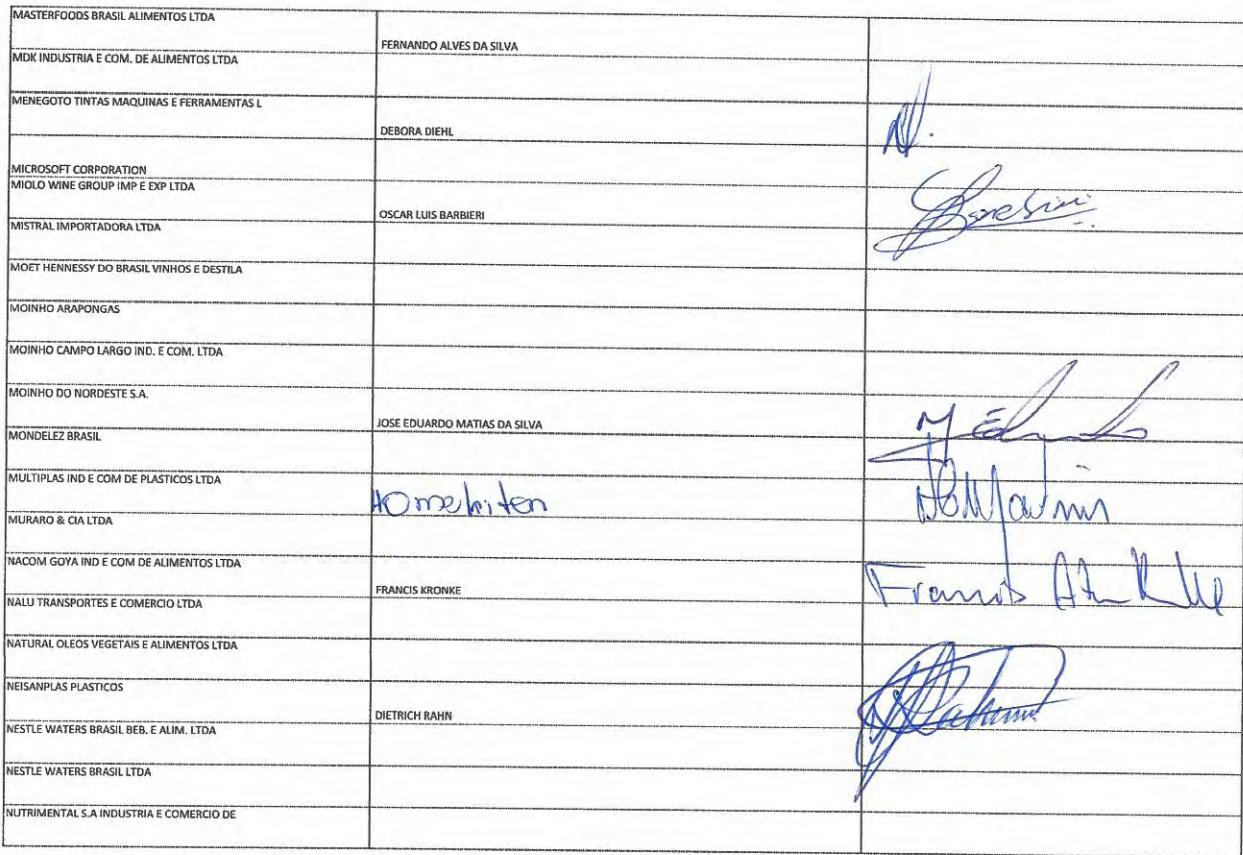 MASTERFOODS BRASIL ALIMENTOS LTDA
FERNANDO ALVES DA SILVA
MDK INDUSTRIA E COM. DE ALIMENTOS LTDA
MENEGOTO TINTAS MAQUINAS E FERRAMENTAS L
DEBORA DIEHL
MICROSOFT CORPORATION
MIOLO WINE GROUP IMP E EXP LTDA
OSCAR LUIS BARBIERI
MISTRAL IMPORTADORA LTDA
MOET HENNESSY DO BRASIL VINHOS E DESTILA
MOINHO ARAPONGAS
MOINHO CAMPO LARGO IND. E COM. LTDA
MOINHO DO NORDESTE S.A.
JOSE EDUARDO MATIAS DA SILVA
MONDELEZ BRASIL
MULTIPLAS IND E COM DE PLASTICOS LTDA
MURARO & CIA LTDA
NACOM GOYA IND E COM DE ALIMENTOS LTDA
FRANCIS KRONKE
Francis
NALU TRANSPORTES E COMERCIO LTDA
NATURAL OLEOS VEGETAIS E ALIMENTOS LTDA
NEISANPLAS PLASTICOS
DIETRICH RAHN
NESTLE WATERS BRASIL BEB. E ALIM. LTDA
NESTLE WATERS BRASIL LTDA
NUTRIMENTAL S.A INDUSTRIA E COMERCIO DE